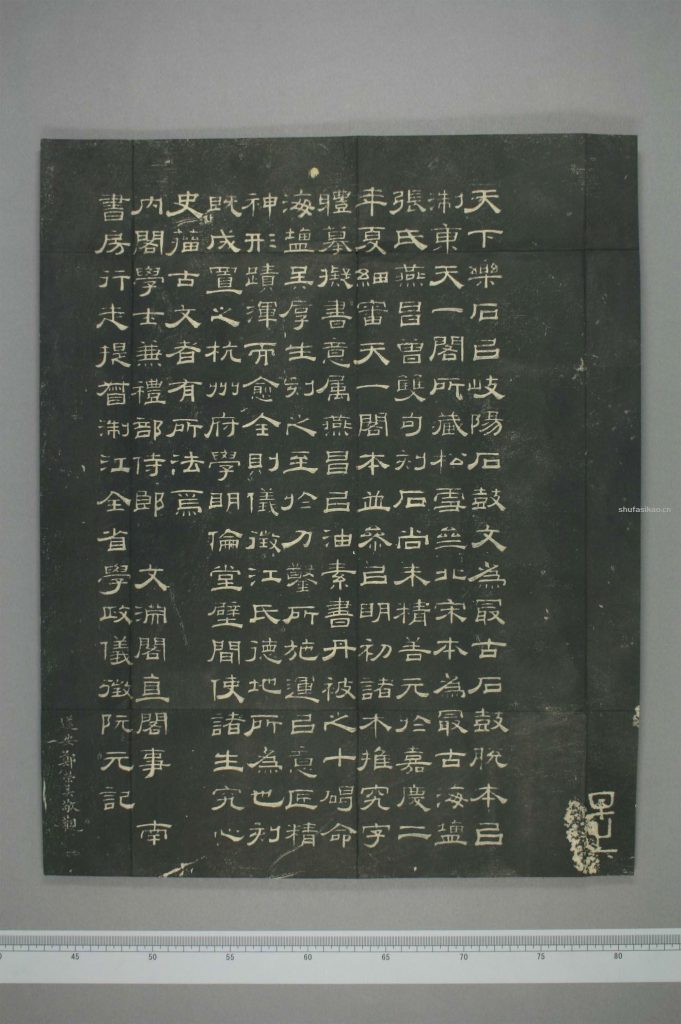 天下樂石㠯岐陽石鼓文為冣古石鼓脫本㠯
淛東天一閣所藏松雪齋北宋本為冣古海鹽
張氏燕昌曾雙句刻石尚未精善元於嘉慶二
年夏細審天一閣本並參㠯明初諸本推究字
體摹擬書意屬燕昌㠯油素書丹被之十碣命
海鹽吳厚生刻之至於刀鑿所施運㠯意匠精
神形蹟渾而愈全則儀徵江氏德地所為也刻
既成置之杭州府學明倫堂壁間使諸生究心
史籀古文者有所法焉
內閣學士兼禮部侍郎 文淵閣直閣事 南
書房行走提督淛江全省學政儀徵阮元記
遂安鄭榮
敬觀
shufasikao.cn
45 50 55 60 65 70 75 80